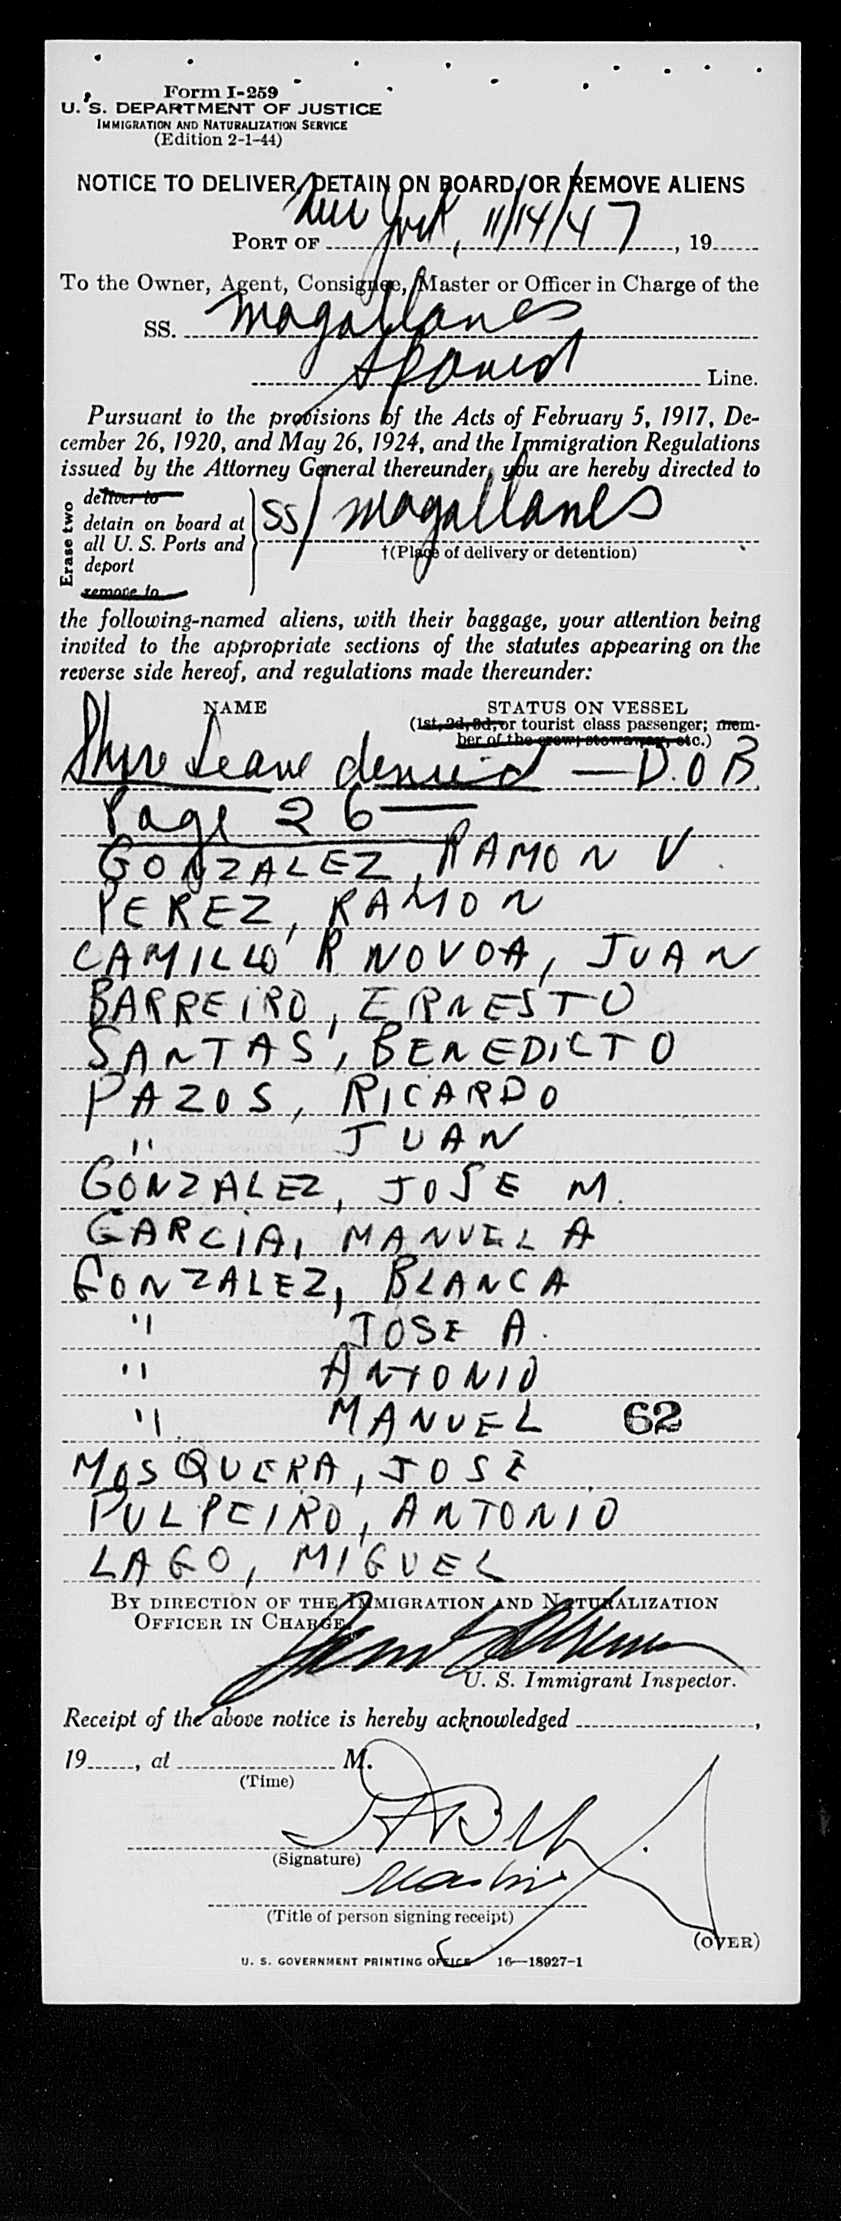 Form I-259
U. S. DEPARTMENT OF JUSTICE
IMMIGRATION AND NATURALIZATION SERVICE
(Edition 2-1-44)
NOTICE TO DELIVER, DETAIN ON BOARD, OR REMOVE ALIENS
PORT OF New York, 11/14/47, 19
To the Owner, Agent, Consignee, Master or Officer in Charge of the
SS. Magallanes
Spanish Line.
Pursuant to the provisions of the Acts of February 5, 1917, De-
cember 26, 1920, and May 26, 1924, and the Immigration Regulations
issued by the Attorney General thereunder, you are hereby directed to
Erase two
deliver to
detain on board at
all U. S. Ports and
deport
remove to
SS/ Magallanes
†(Place of delivery or detention)
the following-named aliens, with their baggage, your attention being
invited to the appropriate sections of the statutes appearing on the
reverse side hereof, and regulations made thereunder:
NAME STATUS ON VESSEL
(1st, 2d, 3d, or tourist class passenger; mem-
ber of the crew; stowaway, etc.)
Shore Leave denied — D.O.B.
Page 26
GONZALEZ, RAMON V.
PEREZ, RAMON
CAMILLO R NOVOA, JUAN
BARREIRO, ERNESTO
SANTAS, BENEDICTO
PAZOS, RICARDO
" JUAN
GONZALEZ, JOSE M.
GARCIA, MANUEL A
GONZALEZ, BLANCA
" JOSE A.
" ANTONIO
" MANUEL 62
MOSQUERA, JOSE
PULPEIRO, ANTONIO
LAGO, MIGUEL
BY DIRECTION OF THE IMMIGRATION AND NATURALIZATION
OFFICER IN CHARGE,
U. S. Immigrant Inspector.
Receipt of the above notice is hereby acknowledged ,
19 , at M.
(Time)
(Signature)
(Title of person signing receipt)
(OVER)
U. S. GOVERNMENT PRINTING OFFICE 16—18927-1